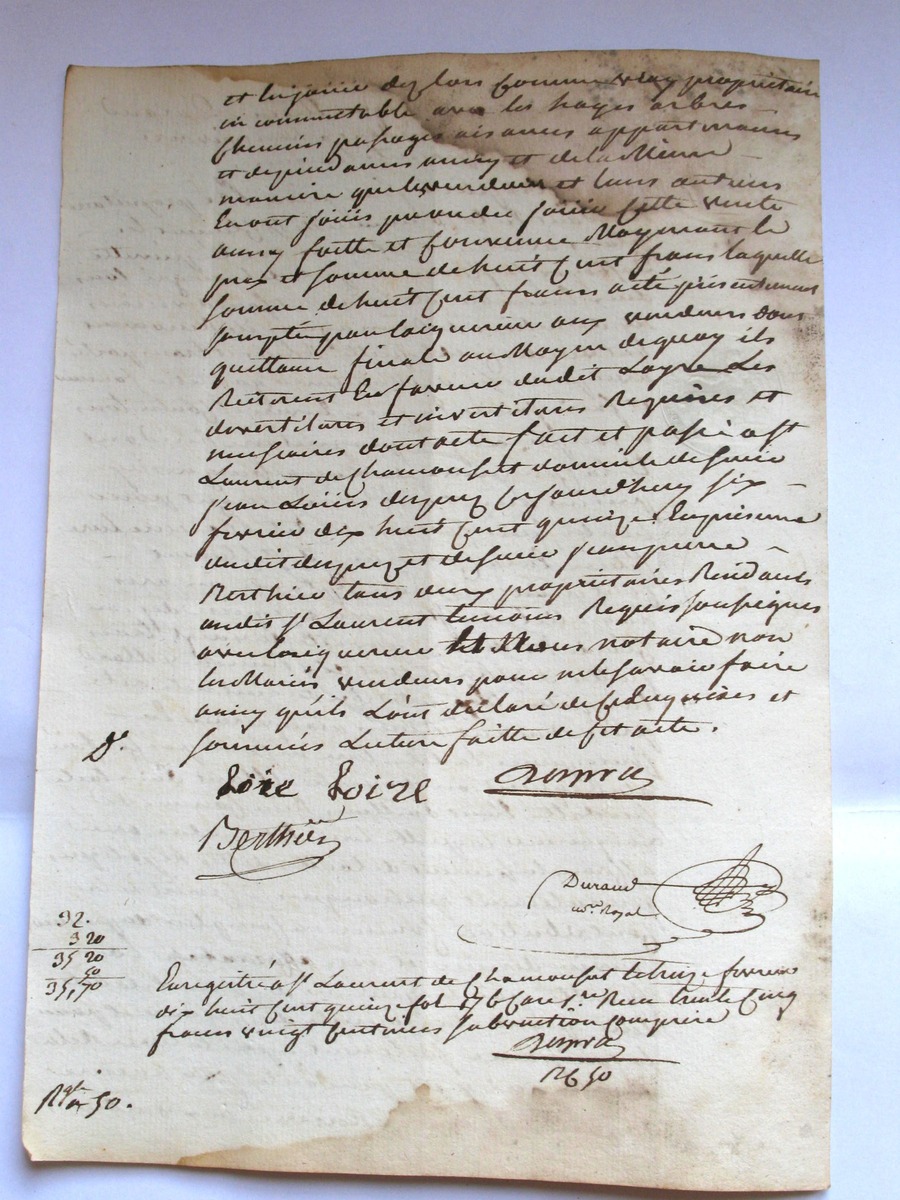 et en jouir dez lors comme vray propriétaire
incommutable avec les hayes arbres
chemins passages aisances appartenances
et dépendances ancay et de la Même
maniere que les vendeurs et leurs auteurs
En ont jouis peu ou deu jouir cette vente
ainsy faitte et convenue Moyenant le
prix et somme de huit Cent francs laquelle
somme de huit Cent francs a été présentement
comptée par l'acquereur aux vendeurs dont
quittance finale au Moyen de quoy ils
Consentent En faveur dudit Loyre Les
devestitures et investitures Requises et
necessaires dont acte fait et passé a st
Laurent de Chamousset domicile de sieur
jean Louis desprez Ce jourdhuy six
fevrier dix huit Cent quinze. En présence
dudit desprez et de sieur jean pierre
Berthier tous deux propriétaires Residants
audit st Laurent temoins Requis soussignés
avec l'acquereur et Nous notaire non
les Mariés vendeurs pour ne le savoir faire
ainsy qu'ils L'ont déclaré de Ce enquis et
sommés Lecture faitte de Cet acte.
Loire
Berthier
Durand
no.re Royal
32.
3 20
35 20
50
35,70
Enregistré a st Laurent de Chamousset le treize fevrier
dix huit Cent quinze fol 176 Reçu trente Cinq
francs vingt Centimes subvention comprise
R 6 50
50.